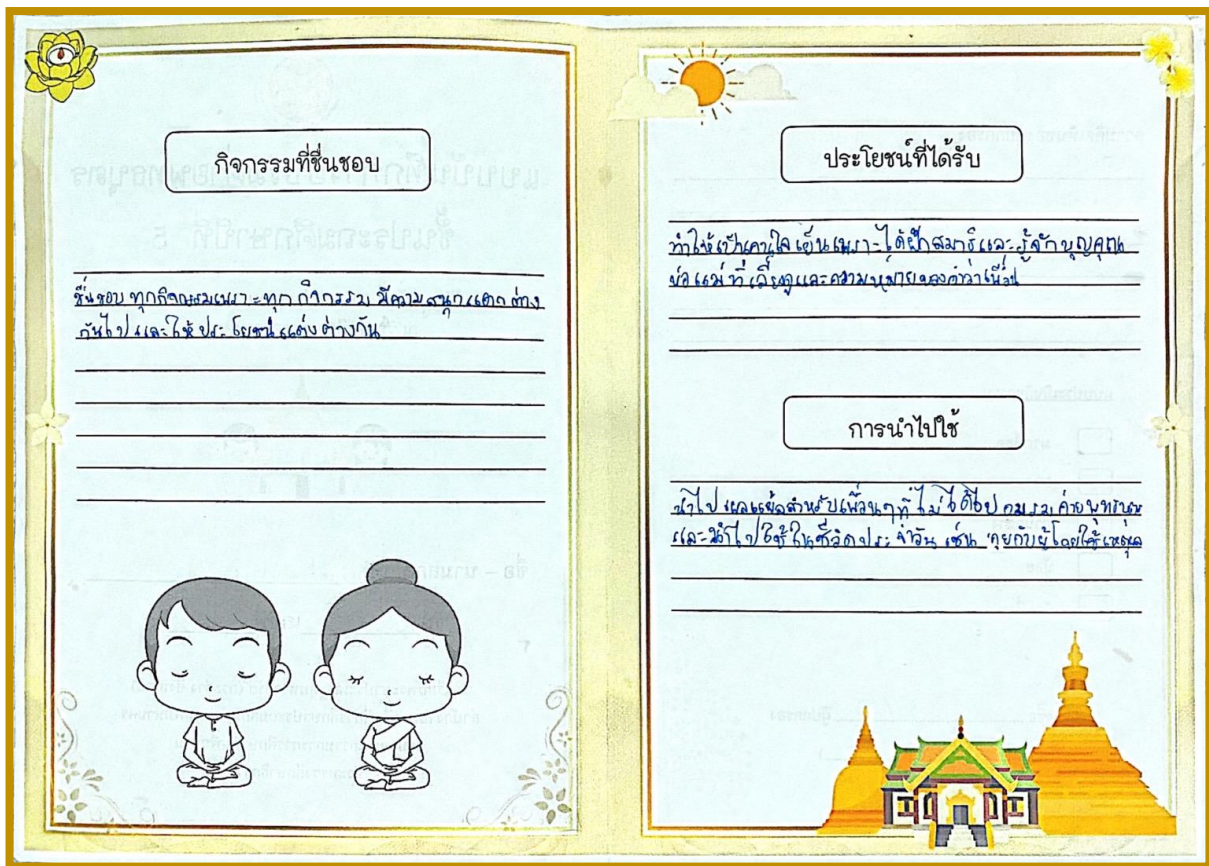 กิจกรรมที่ชื่นชอบ
ชื่นชอบ ทุกกิจกรรมเพราะทุก กิจกรรม มีความ สนุก แตก ต่าง
กันไป และให้ ประโยชน์ ต่าง กัน
ประโยชน์ที่ได้รับ
ทำให้เป็นคนใจเย็นเพราะได้ฝึกสมาธิและรู้จักบุญคุณ
พ่อแม่ ที่ เลี้ยงดูและความหมายของคำว่าเพื่อน
การนำไปใช้
นำไป เผยแพร่สำหรับเพื่อนๆที่ ไม่ ได้ไป อบรม ค่ายพุทธบุตร
และนำไปใช้ในชีวิตประจำวัน เช่น คุยกับผู้โดยใช้เหตุผล